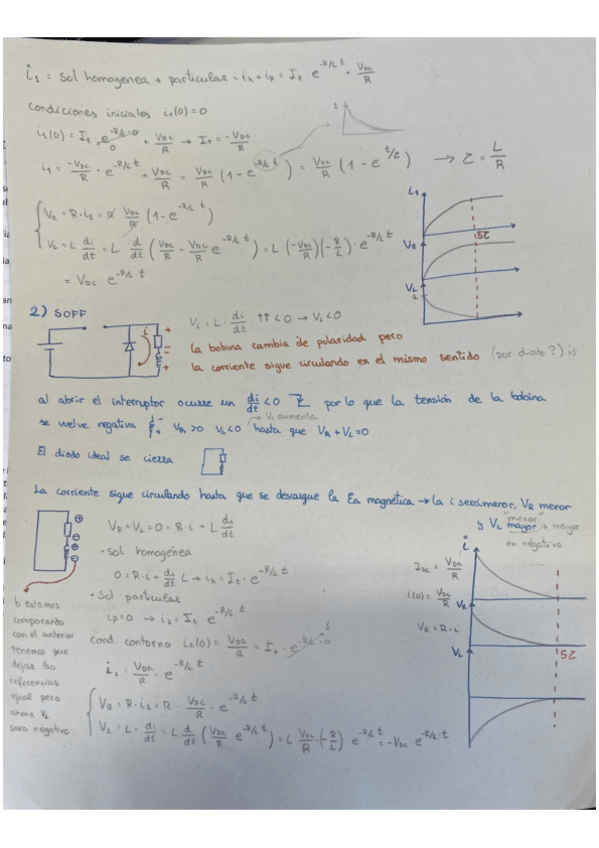 i₁ = sol homogenea + particular = iₕ + iₚ = I₊ · e^(-R/L t) + V_DC/R
condiciones iniciales i₁(0) = 0
i₁(0) = I₊ · e^(-R/L · 0) + V_DC/R → I₊ = -V_DC/R
i₁ = -V_DC/R · e^(-R/L t) + V_DC/R = V_DC/R (1 - e^(-R/L t)) = V_DC/R (1 - e^(t/τ)) → τ = L/R
V_R = R · i₁ = R V_DC/R (1 - e^(-R/L t))
V_L = L di/dt = L d/dt (V_DC/R - V_DC/R e^(-R/L t)) = L (-V_DC/R)(-R/L) · e^(-R/L t)
= V_DC e^(-R/L t)
i₁
5τ
V_R
V_L
2) SOFF
i
V_L = L · di/dt ↑↑ < 0 → V_L < 0
la bobina cambia de polaridad pero
la corriente sigue circulando en el mismo sentido (por diodo?) sí
al abrir el interruptor ocurre un di/dt < 0 por lo que la tensión de la bobina
→ V_L aumenta
se vuelve negativa V_R > 0 V_L < 0 hasta que V_R + V_L = 0
El diodo ideal se cierra
La corriente sigue circulando hasta que se descargue la Ea magnética → la i será menor, V_R menor
"menor"
y V_L mayor → mayor
en negativo
V_R + V_L = 0 = R · i + L di/dt
· sol homogénea
0 = R · i + di/dt L → iₕ = I₊ · e^(-R/L t)
· sol particular
ip = 0 → i₂ = I₊ e^(-R/L t)
cond. contorno i₂(0) = V_DC/R = I₊ · e^(-R/L · 0)
1
i₂ = V_DC/R · e^(-R/L t)
V_R = R · i₂ = R · V_DC/R · e^(-R/L t)
V_L = L · di/dt = L d/dt (V_DC/R e^(-R/L t)) = L V_DC/R · (-R/L) · e^(-R/L t) = -V_DC e^(-R/L t)
estamos
comparando
con el anterior
tenemos que
dejar las
referencias
igual pero
ahora V_L
será negativo
i
I_DC = V_DC/R
i(0) = V_DC/R
V_R
V_R = R · i
V_L
5τ